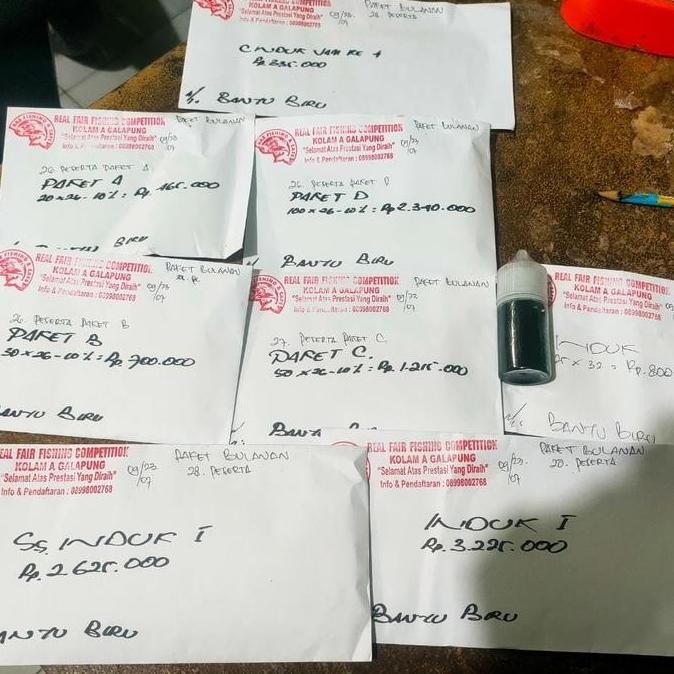 REAL FAIR FISHING COMPETITION
KOLAM A GALAPUNG
"Selamat Atas Prestasi Yang Diraih"
Info & Pendaftaran : 08998002768
09/23
/07
PAKET BULANAN
28. PESERTA
CINDUK JAM KE 1
Rp 335.000
BANTU BIRU
REAL FAIR FISHING COMPETITION
KOLAM A GALAPUNG
"Selamat Atas Prestasi Yang Diraih"
Info & Pendaftaran : 08998002768
09/23
/07
PAKET BULANAN
26. PESERTA PAKET A
PAKET A
20 x 26 - 10% = Rp. 465.000
BIRU
REAL FAIR FISHING COMPETITION
KOLAM A GALAPUNG
"Selamat Atas Prestasi Yang Diraih"
Info & Pendaftaran : 08998002768
09/23
/07
PAKET BULANAN
26. PESERTA PAKET D
PAKET D
100 x 26 - 10% = Rp 2.340.000
BANTU BIRU
REAL FAIR FISHING COMPETITION
KOLAM A GALAPUNG
"Selamat Atas Prestasi Yang Diraih"
Info & Pendaftaran : 08998002768
09/23
/07
PAKET BULANAN
26. PESERTA PAKET B
PAKET B
30 x 26 - 10% = Rp. 700.000
BANTU BIRU
REAL FAIR FISHING COMPETITION
KOLAM A GALAPUNG
"Selamat Atas Prestasi Yang Diraih"
Info & Pendaftaran : 08998002768
09/22
/07
PAKET BULANAN
27. PESERTA PAKET C.
PAKET C.
50 x 26 - 10% = Rp. 1.215.000
BANTU
REAL FAIR FISHING COMPETITION
KOLAM A GALAPUNG
"Selamat Atas Prestasi Yang Diraih"
Info & Pendaftaran : 08998002768
INDUK
25 x 32 = Rp. 800
BANTU BIRU
REAL FAIR FISHING COMPETITION
KOLAM A GALAPUNG
"Selamat Atas Prestasi Yang Diraih"
Info & Pendaftaran : 08998002768
09/23
/07
PAKET BULANAN
28. PESERTA
SS. INDUK I
Rp. 2.625.000
BANTU BIRU
REAL FAIR FISHING COMPETITION
KOLAM A GALAPUNG
"Selamat Atas Prestasi Yang Diraih"
Info & Pendaftaran : 08998002768
09/23.
/07
PAKET BULANAN
28. PESERTA
INDUK I
Rp. 3.225.000
BANTU BIRU